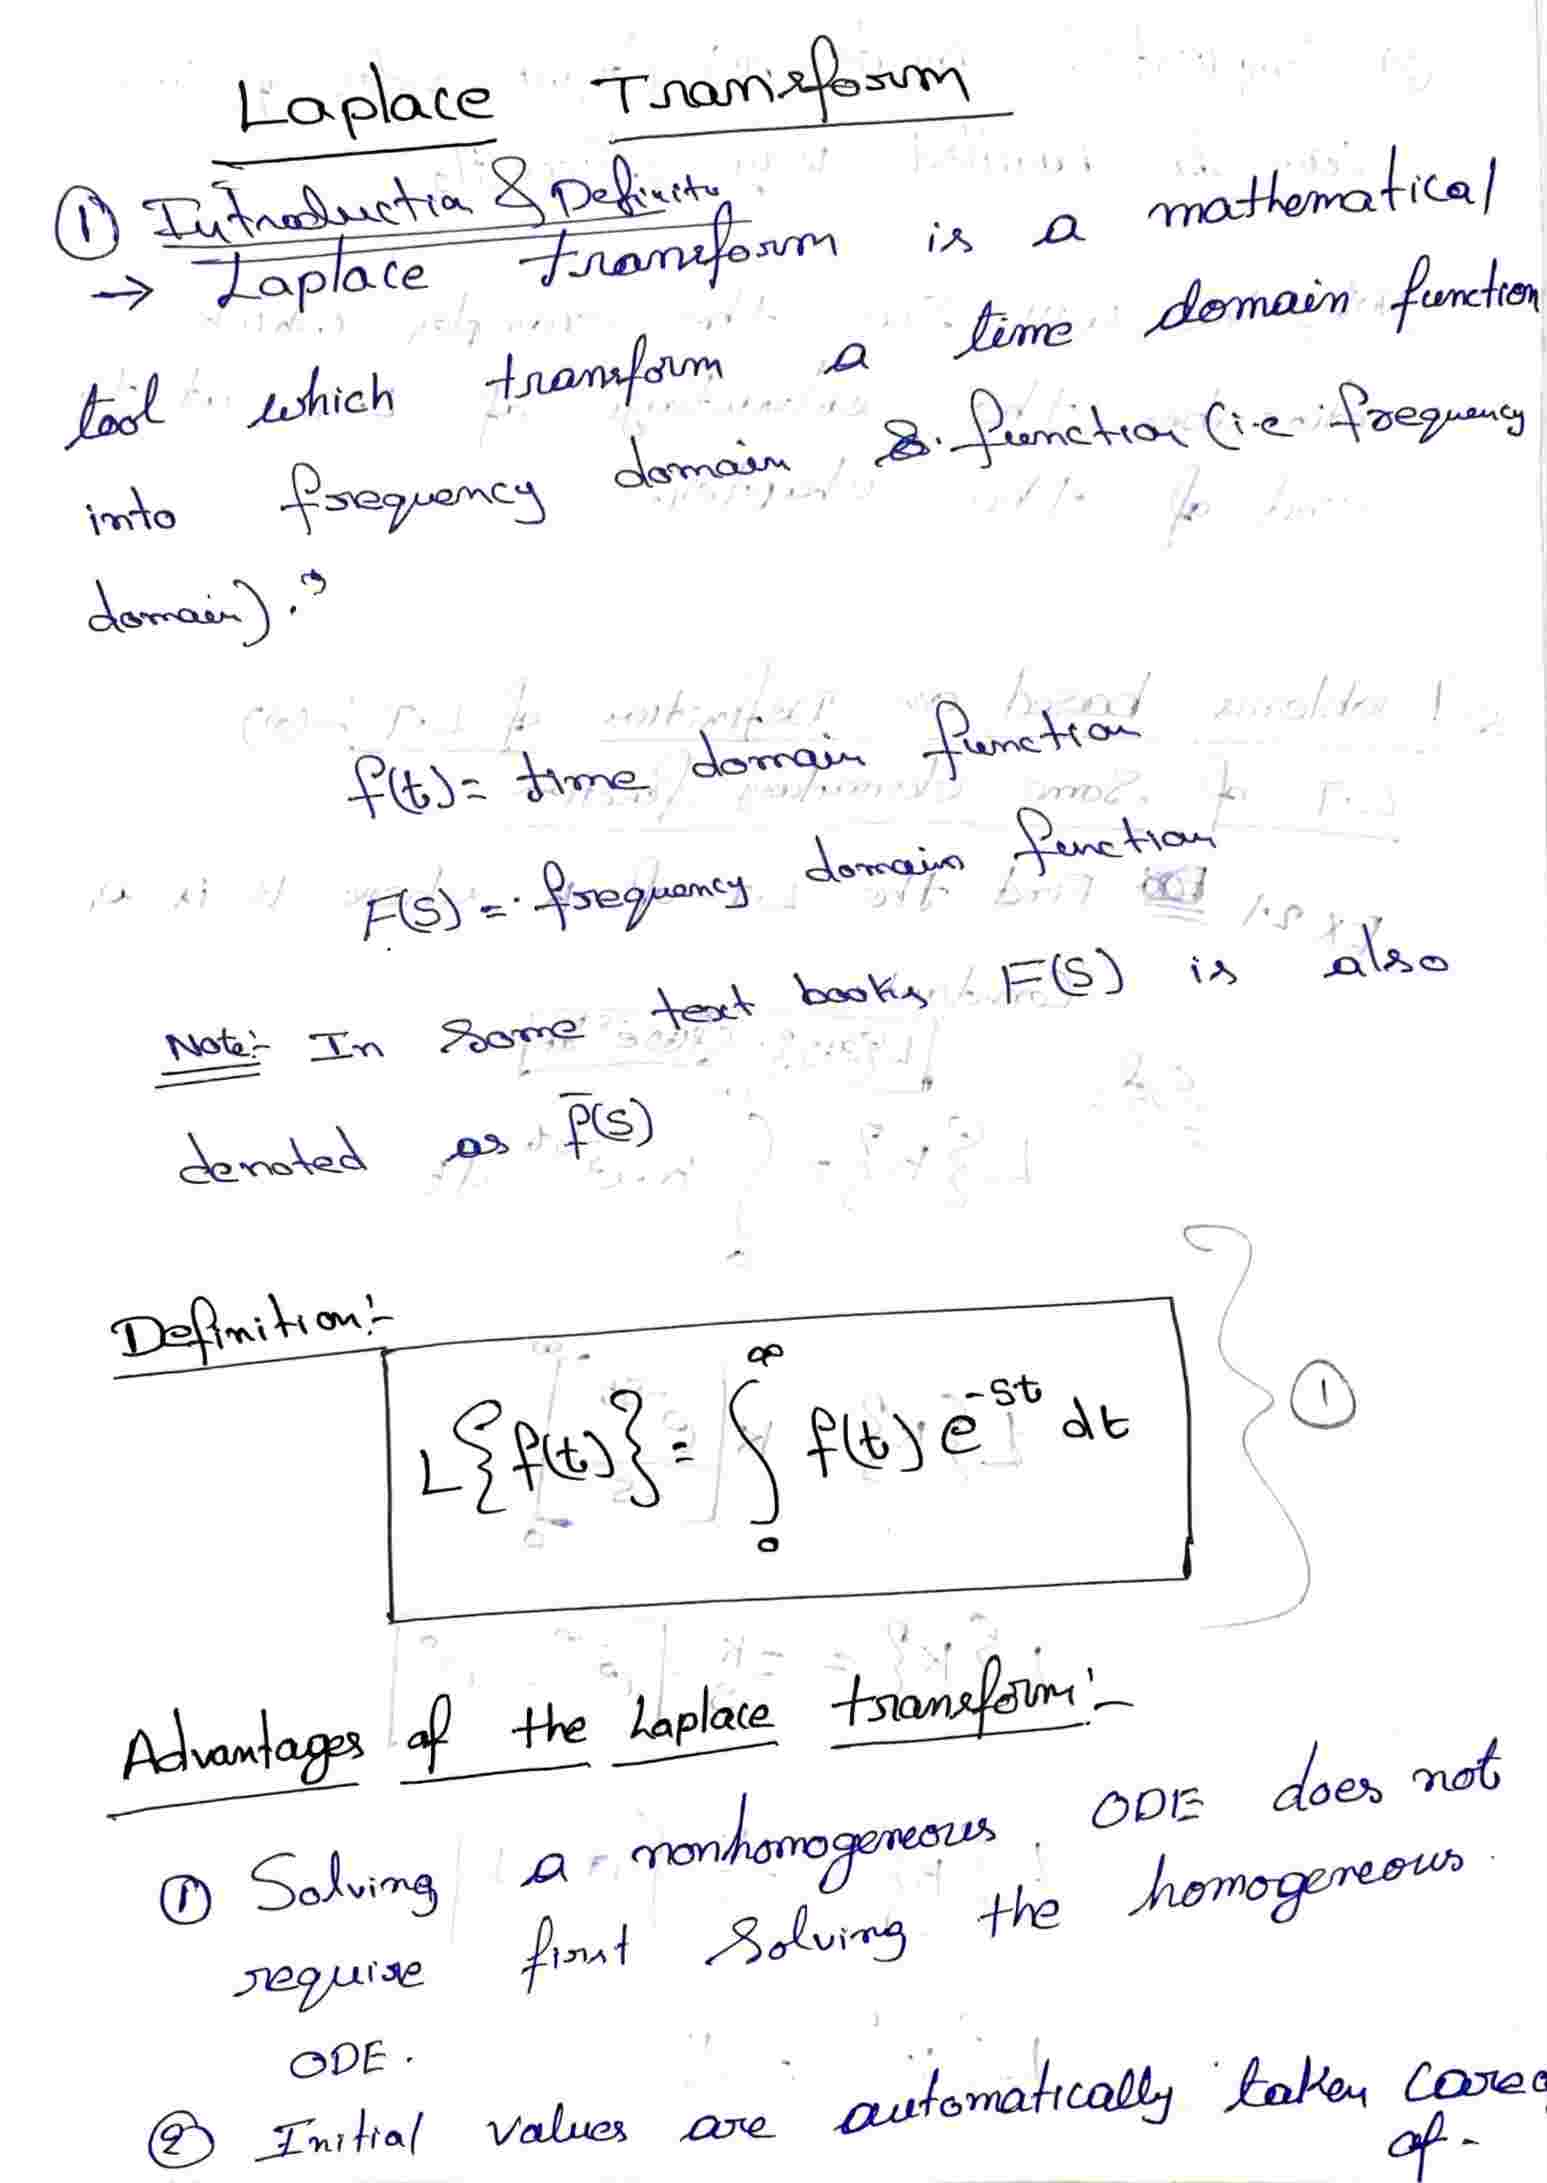 Laplace Transform
① Introduction & Definitn
→ Laplace transform is a mathematical
tool which transform a time domain function
into frequency domain function (i.e frequency
domain).
f(t) = time domain function
F(S) = frequency domain function
Note:- In some text books F(S) is also
denoted as f̄(S)
Definition:-
L{f(t)} = ∫₀^∞ f(t) e^-st dt
①
Advantages of the Laplace transform:-
① Solving a nonhomogeneous ODE does not
require first solving the homogeneous
ODE.
② Initial values are automatically taken care
of.